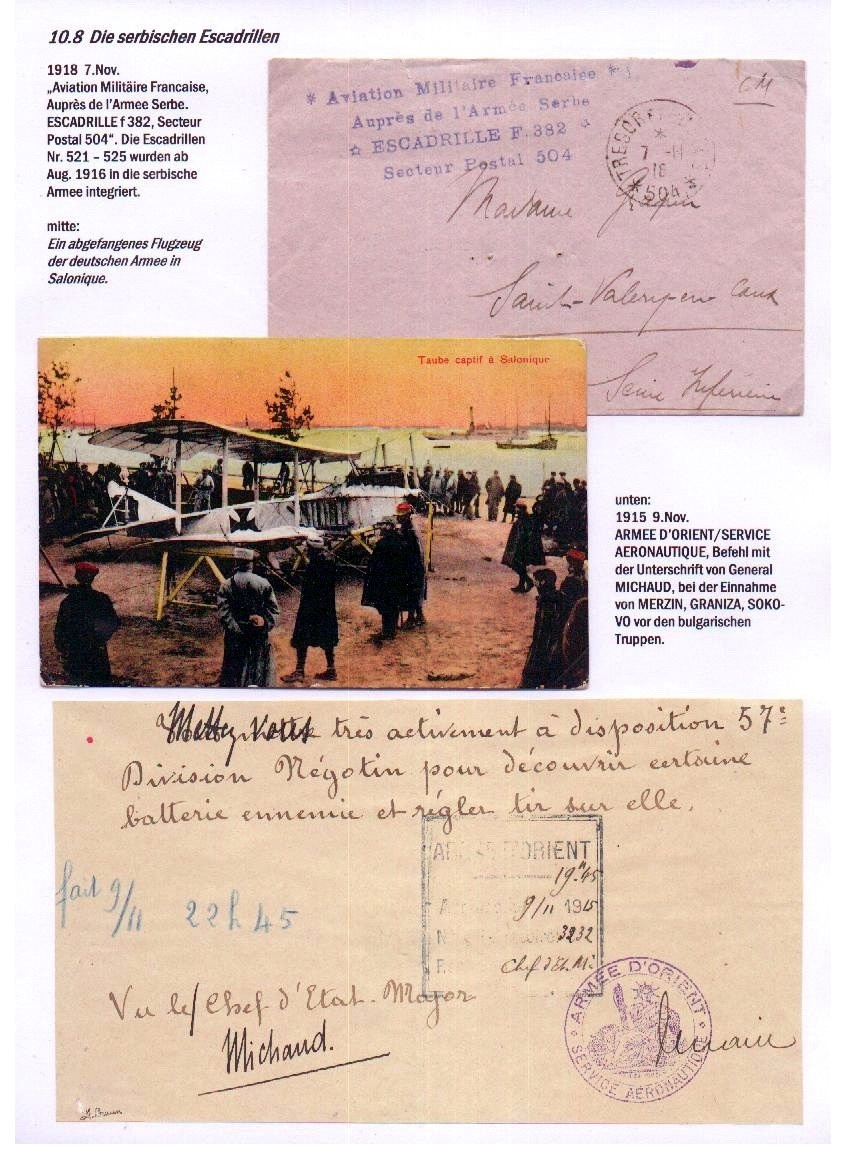 10.8 Die serbischen Escadrillen
1918 7.Nov.
„Aviation Militäire Francaise,
Auprès de l'Armee Serbe.
ESCADRILLE f 382, Secteur
Postal 504“. Die Escadrillen
Nr. 521 – 525 wurden ab
Aug. 1916 in die serbische
Armee integriert.
mitte:
Ein abgefangenes Flugzeug
der deutschen Armee in
Salonique.
* Aviation Militaire Française *
Auprès de l'Armée Serbe
ESCADRILLE F.382
Secteur Postal 504
CM
TRESOR
7 -11
18
*504*
Madame
Saint-Valery-en Caux
Seine Inférieure
Taube captif à Salonique
unten:
1915 9.Nov.
ARMEE D'ORIENT/SERVICE
AERONAUTIQUE, Befehl mit
der Unterschrift von General
MICHAUD, bei der Einnahme
von MERZIN, GRANIZA, SOKO-
VO vor den bulgarischen
Truppen.
Mettez vous très activement à disposition 57e
Division Négotin pour découvrir certaine
batterie ennemie et régler tir sur elle.
ARMEE D'ORIENT
19h45
9/11 1915
3232
Chef d'Et. M.
fait 9/11 22h45
Vu le/Chef d'Etat-Major
Michaud.
ARMÉE D'ORIENT
SERVICE AERONAUTIQUE